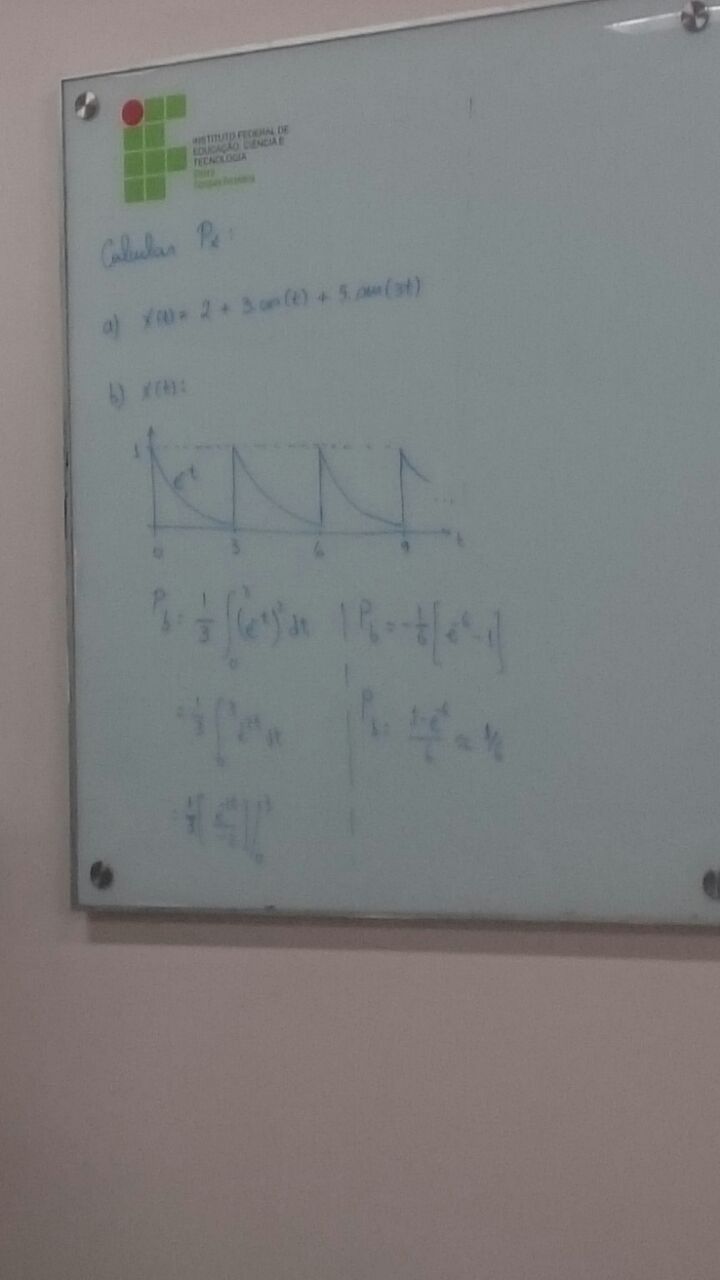 INSTITUTO FEDERAL DE
EDUCAÇÃO, CIÊNCIA E
TECNOLOGIA
Ceará
Calcular Px:
a) x(t) = 2 + 3 cos(t) + 5 cos(3t)
b) x(t):
1
e^-t
...
0 3 6 9 t
Pb = 1/3 ∫₀³ (e^-t)² dt
= 1/3 ∫₀³ e^-2t dt
= 1/3 [e^-2t/-2]|₀³
Pb = -1/6 [e^-6 - 1]
Pb = 1-e^-6/6 ≈ 1/6